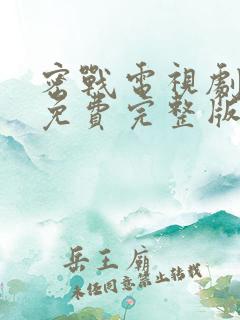 密戰電視劇
免費完整版
岳王廟
未经同意禁止转载